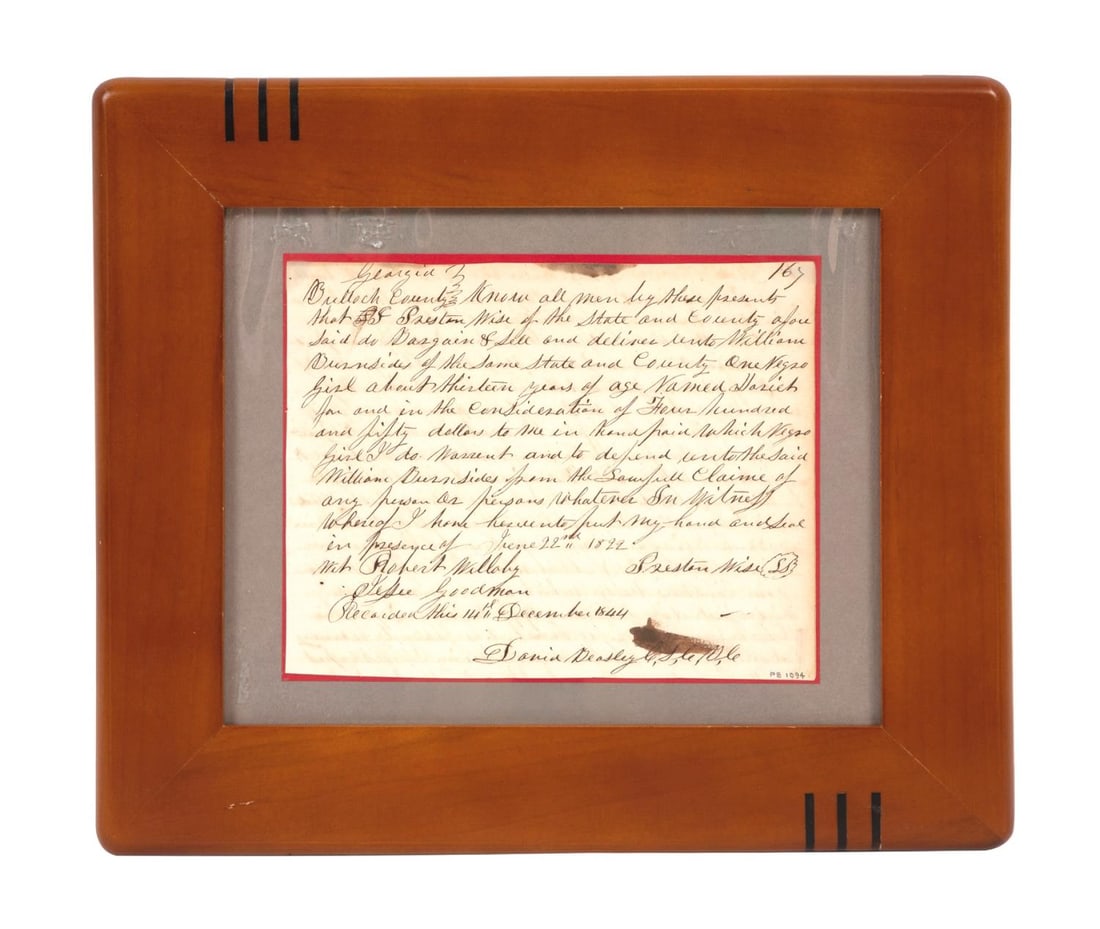 Georgia } 167
Bulloch County } Know all men by these presents
that I Preston Wise of the State and County afore
said do Bargain & Sell and deliver unto William
Burnsides of the same State and County One Negro
Girl about thirteen years of age Named Hariet
for and in the Consideration of Four hundred
and fifty dollars to me in hand paid which Negro
Girl I do warrent and to defend unto the said
William Burnsides from the Lawfull Claime of
any person or persons whatever In Witness
whereof I have hereunto put my hand and Seal
in presence of June 22nd 1822
Wit Robert Willoby Preston Wise (LS)
Jesse Goodman
Recorded this 14th December 1844
David Beasley C.S.C.B.C
PB 1094